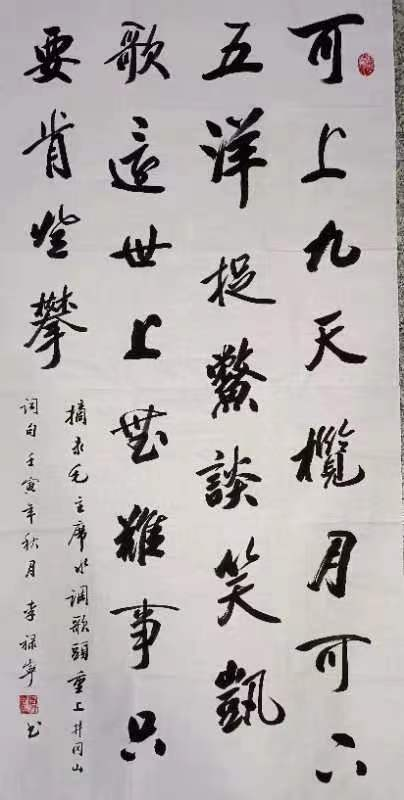 可上九天欖月可下
五洋捉鱉談笑凱
歌還世上無難事只
要肯登攀
摘录毛主席水调歌頭重上井冈山
词句壬寅年秋月李禄寧书